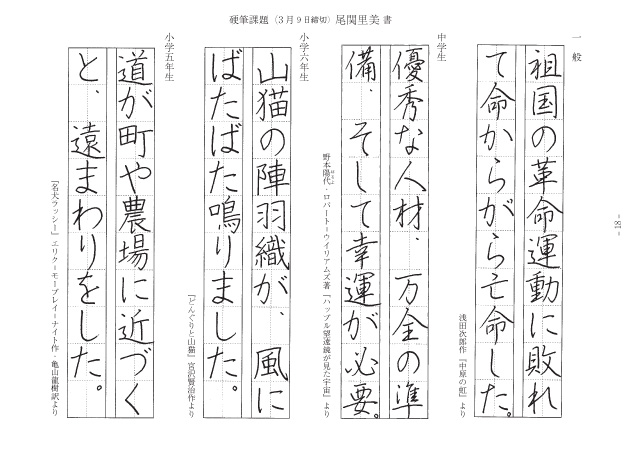 硬筆課題（3月9日締切）尾関里美 書
一般
祖国の革命運動に敗れ
て命からがら亡命した。
浅田次郎作『中原の虹』より
中学生
優秀な人材、万全の準
備、そして幸運が必要。
野本陽代・ロバート＝ウイリアムズ著『ハッブル望遠鏡が見た宇宙』より
小学六年生
山猫の陣羽織が、風に
ばたばた鳴りました。
『どんぐりと山猫』宮沢賢治作より
小学五年生
道が町や農場に近づく
と、遠まわりをした。
『名犬ラッシー』エリク＝モーブレイ＝ナイト作 亀山龍樹訳より